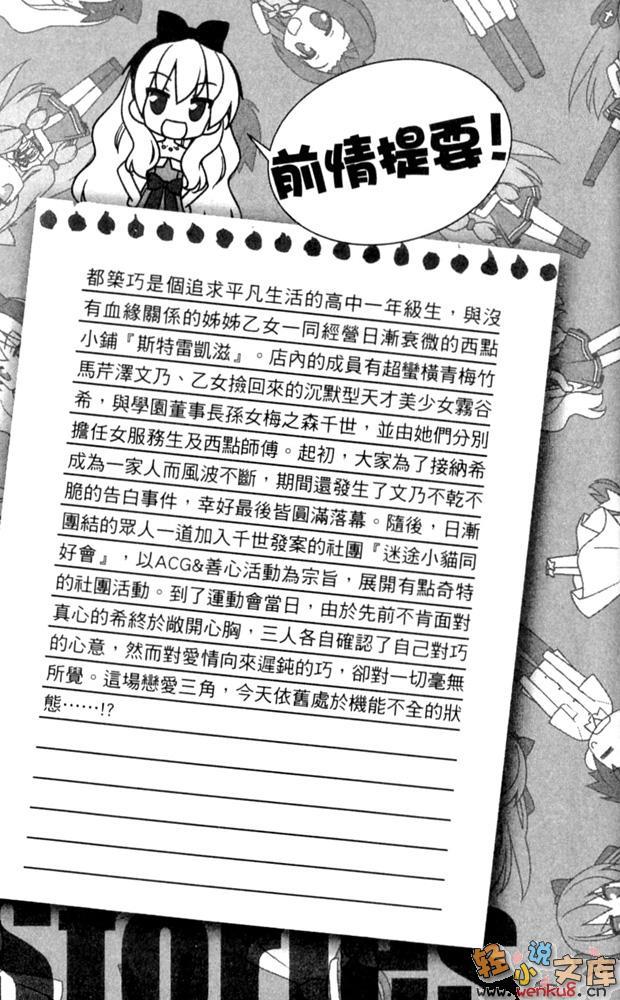 前情提要!
都築巧是個追求平凡生活的高中一年級生，與沒
有血緣關係的姊姊乙女一同經營日漸衰微的西點
小鋪『斯特雷凱滋』。店內的成員有超蠻橫青梅竹
馬芹澤文乃、乙女撿回來的沉默型天才美少女霧谷
希，與學園董事長孫女梅之森千世，並由她們分別
擔任女服務生及西點師傅。起初，大家為了接納希
成為一家人而風波不斷，期間還發生了文乃不乾不
脆的告白事件，幸好最後皆圓滿落幕。隨後，日漸
團結的眾人一道加入千世發案的社團『迷途小貓同
好會』，以ACG&善心活動為宗旨，展開有點奇特
的社團活動。到了運動會當日，由於先前不肯面對
真心的希終於敞開心胸，三人各自確認了自己對巧
的心意，然而對愛情向來遲鈍的巧，卻對一切毫無
所覺。這場戀愛三角，今天依舊處於機能不全的狀
態……!?
stories
轻小说文库
www.wenku8.cn